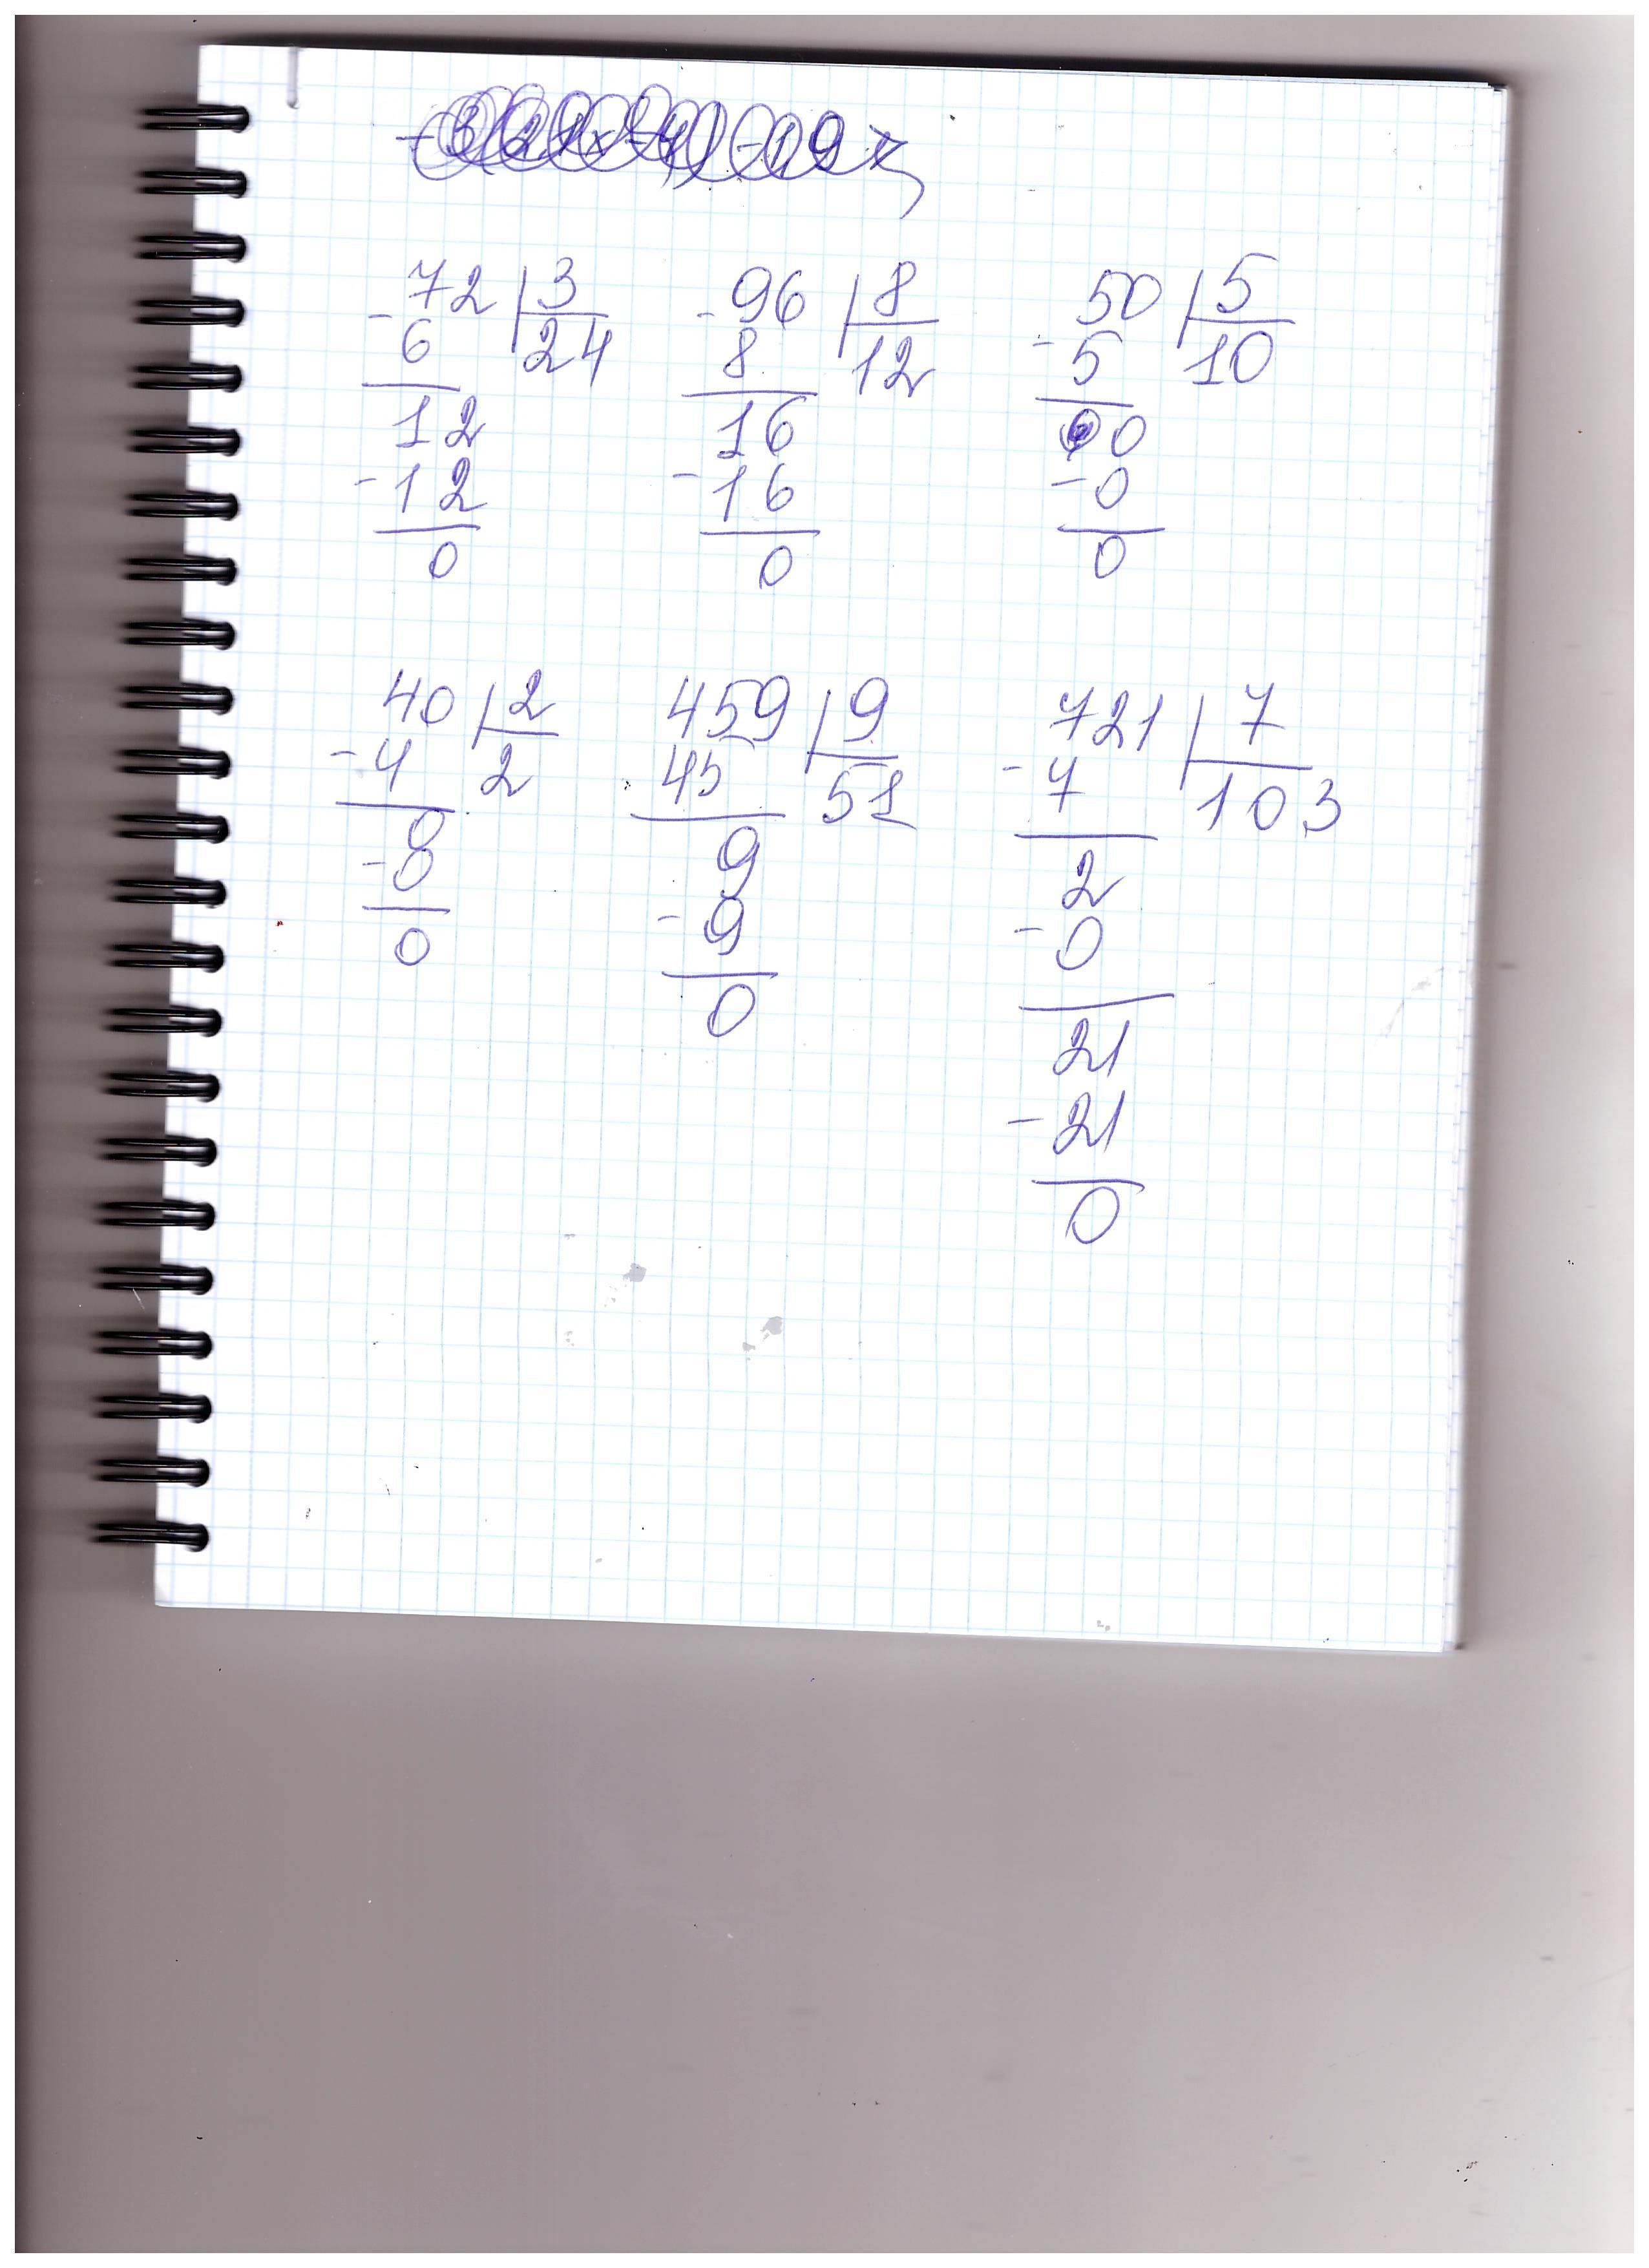 72 3 96 8 50 5
- 6 24 - 8 12 - 5 10
12 16 0
- 12 - 16 - 0
0 0 0
40 2 459 9 721 7
- 4 2 45 51 - 7 103
0 9 2
- 0 - 9 - 0
0 0 21
- 21
0